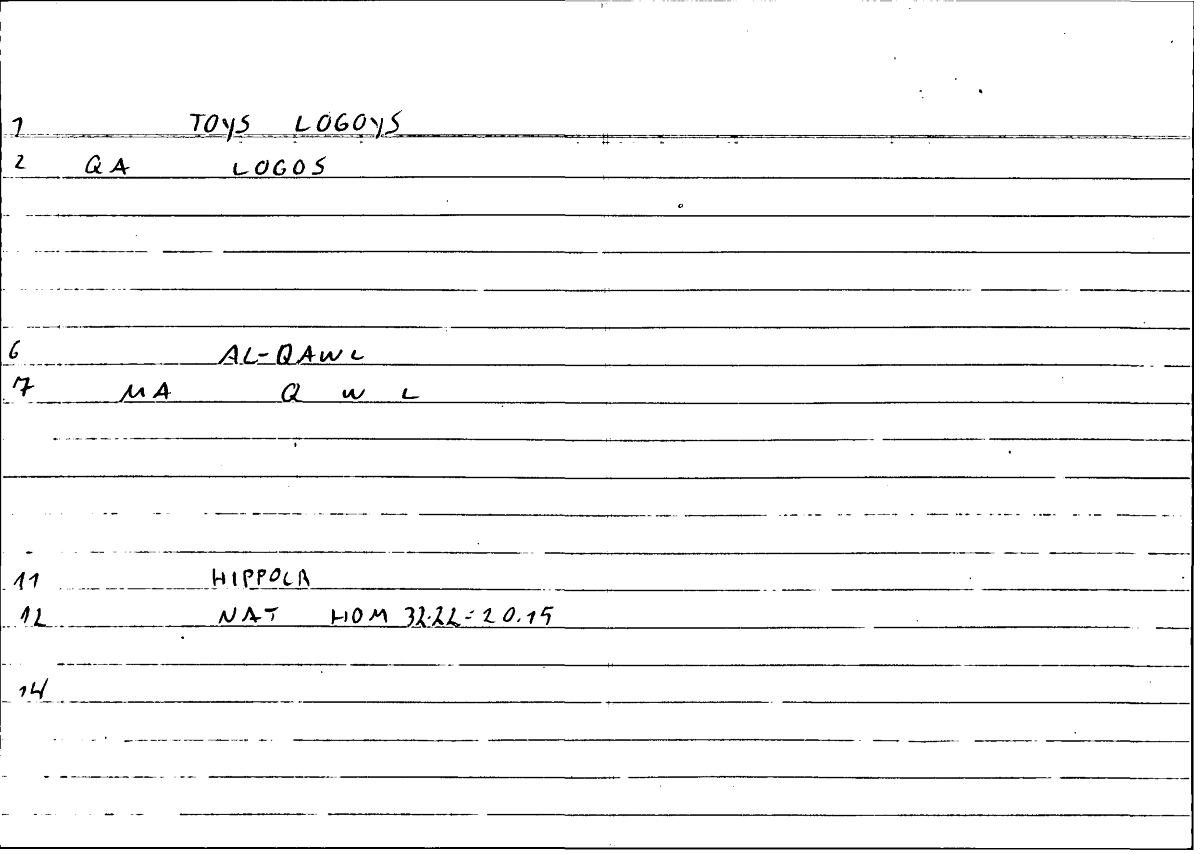 1 TOYS LOGOYS
2 QA LOGOS
6 AL-QAWL
7 MA Q W L
11 HIPPOCR
12 NAT HOM 32.22 = 20.15
14